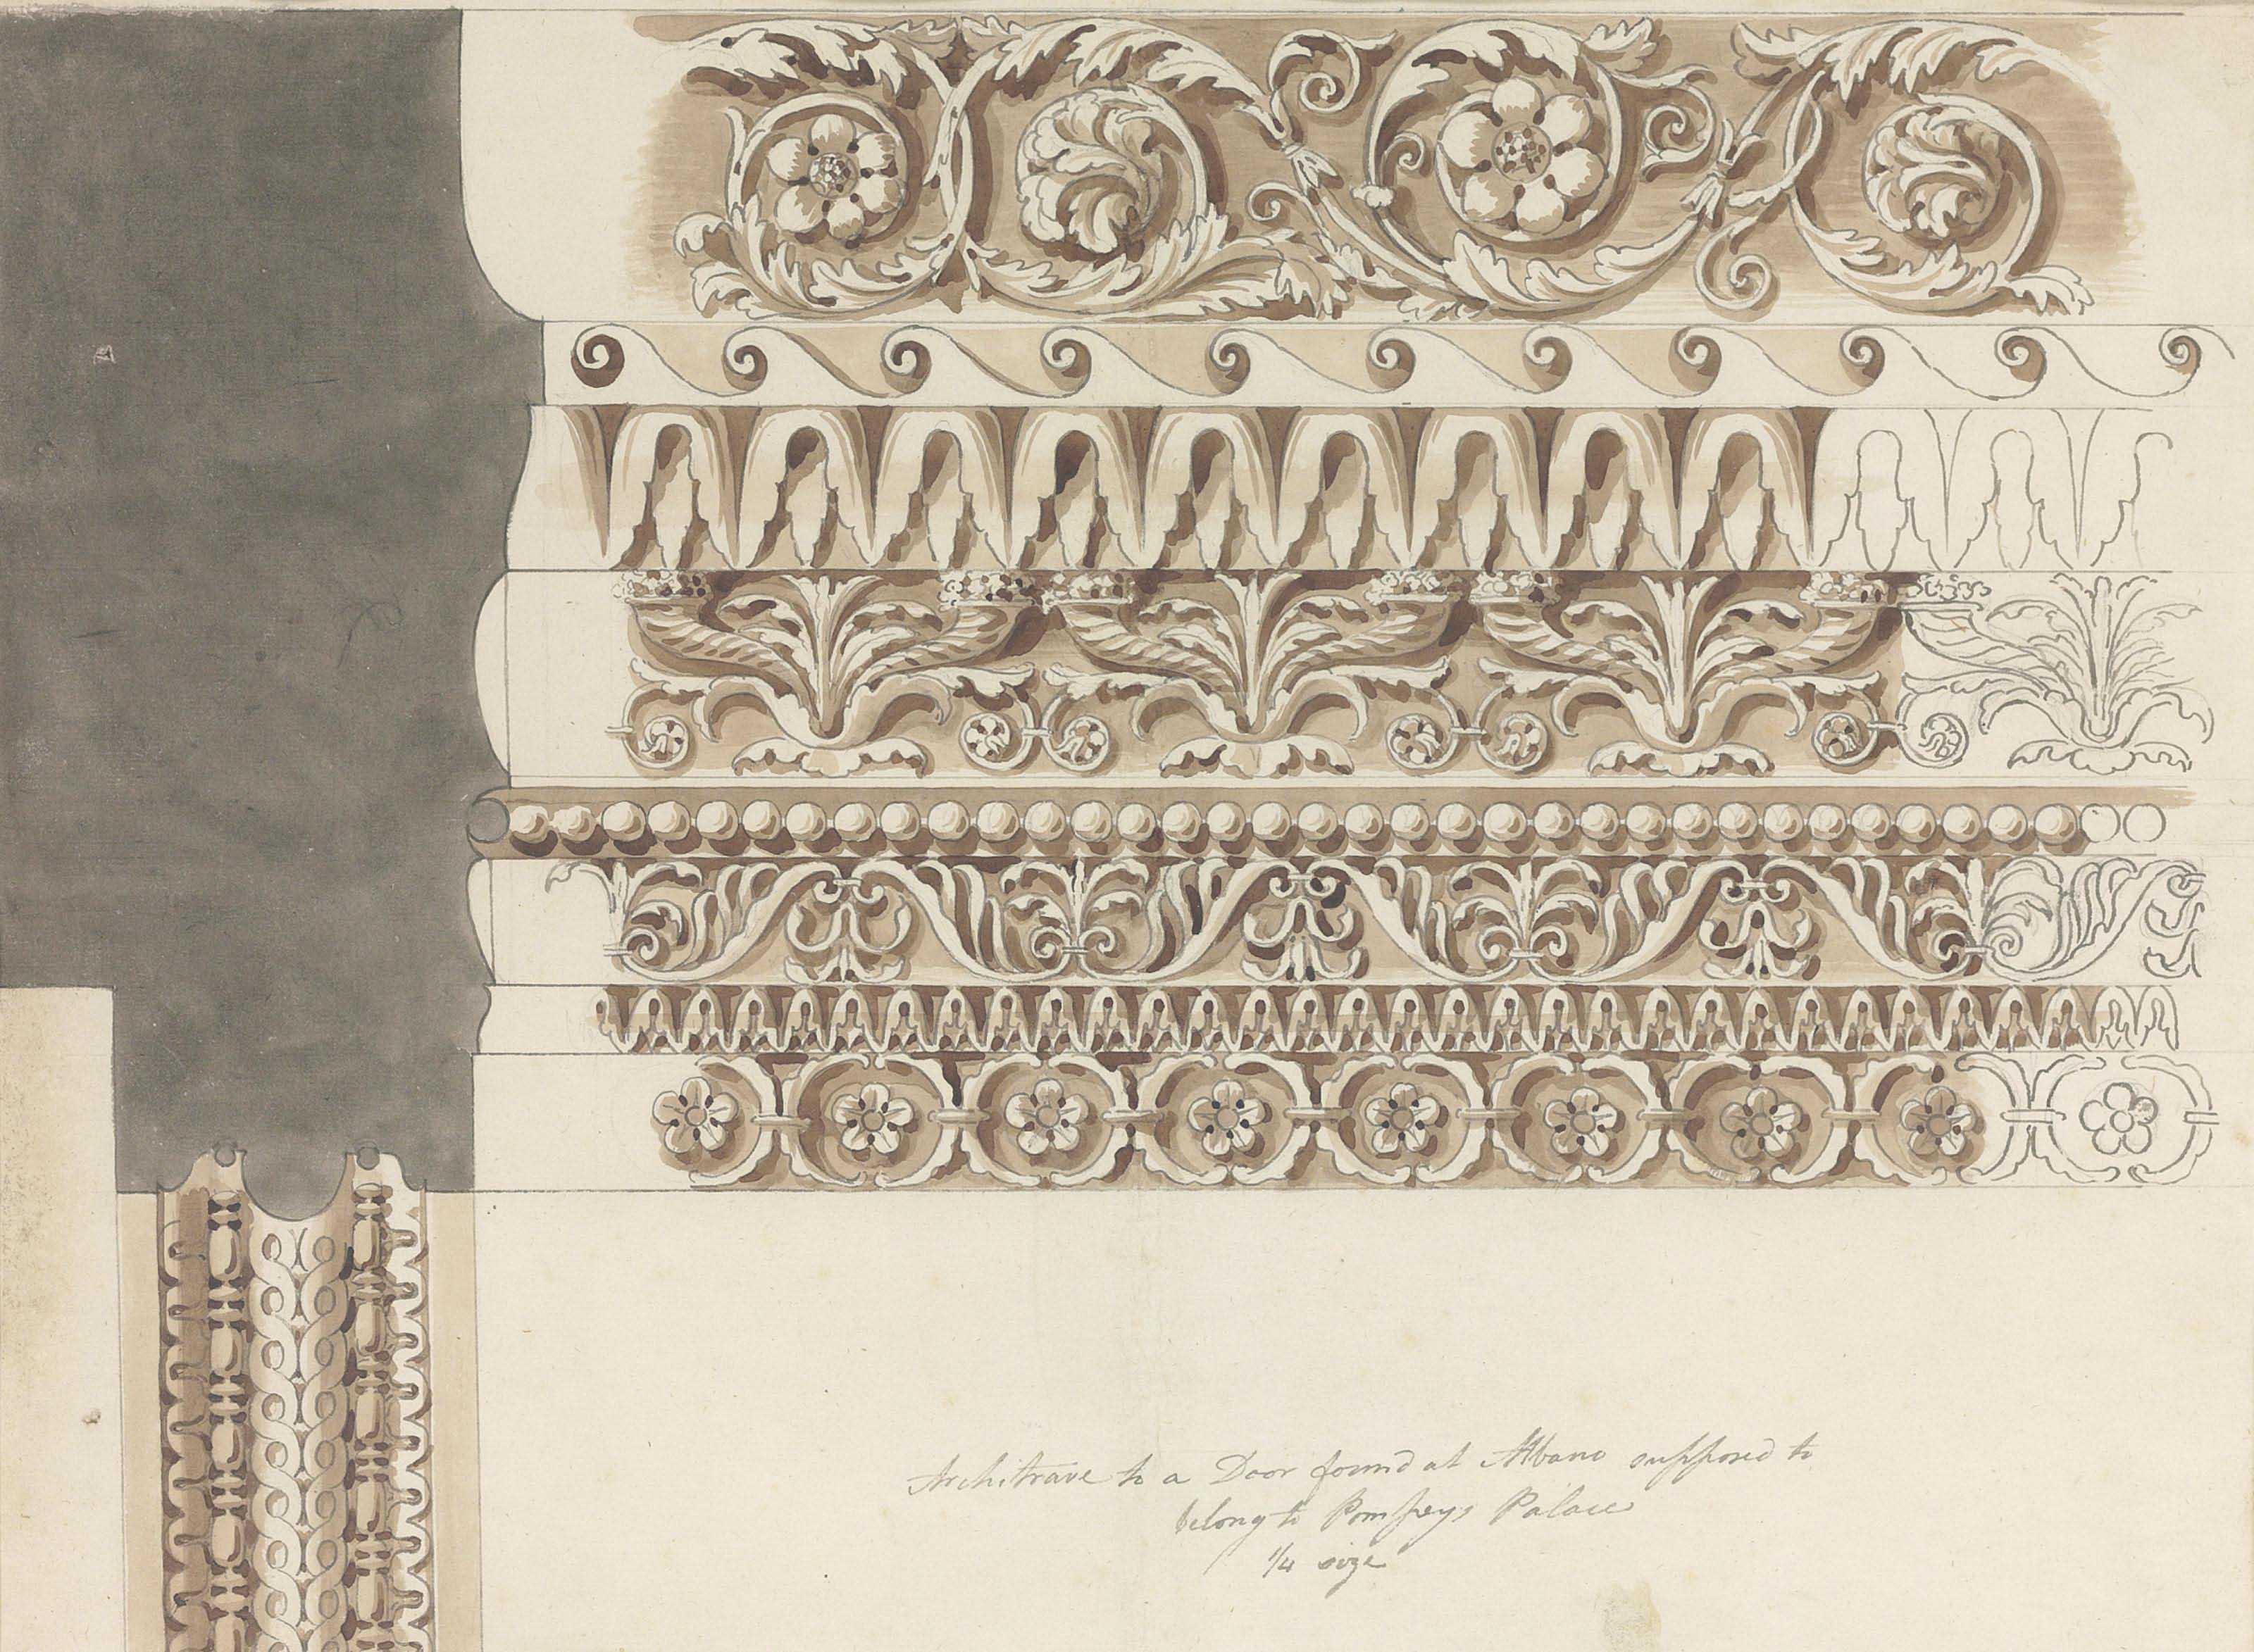 Architrave to a Door found at Albano supposed to
belong to Pompeys Palace
1/4 size